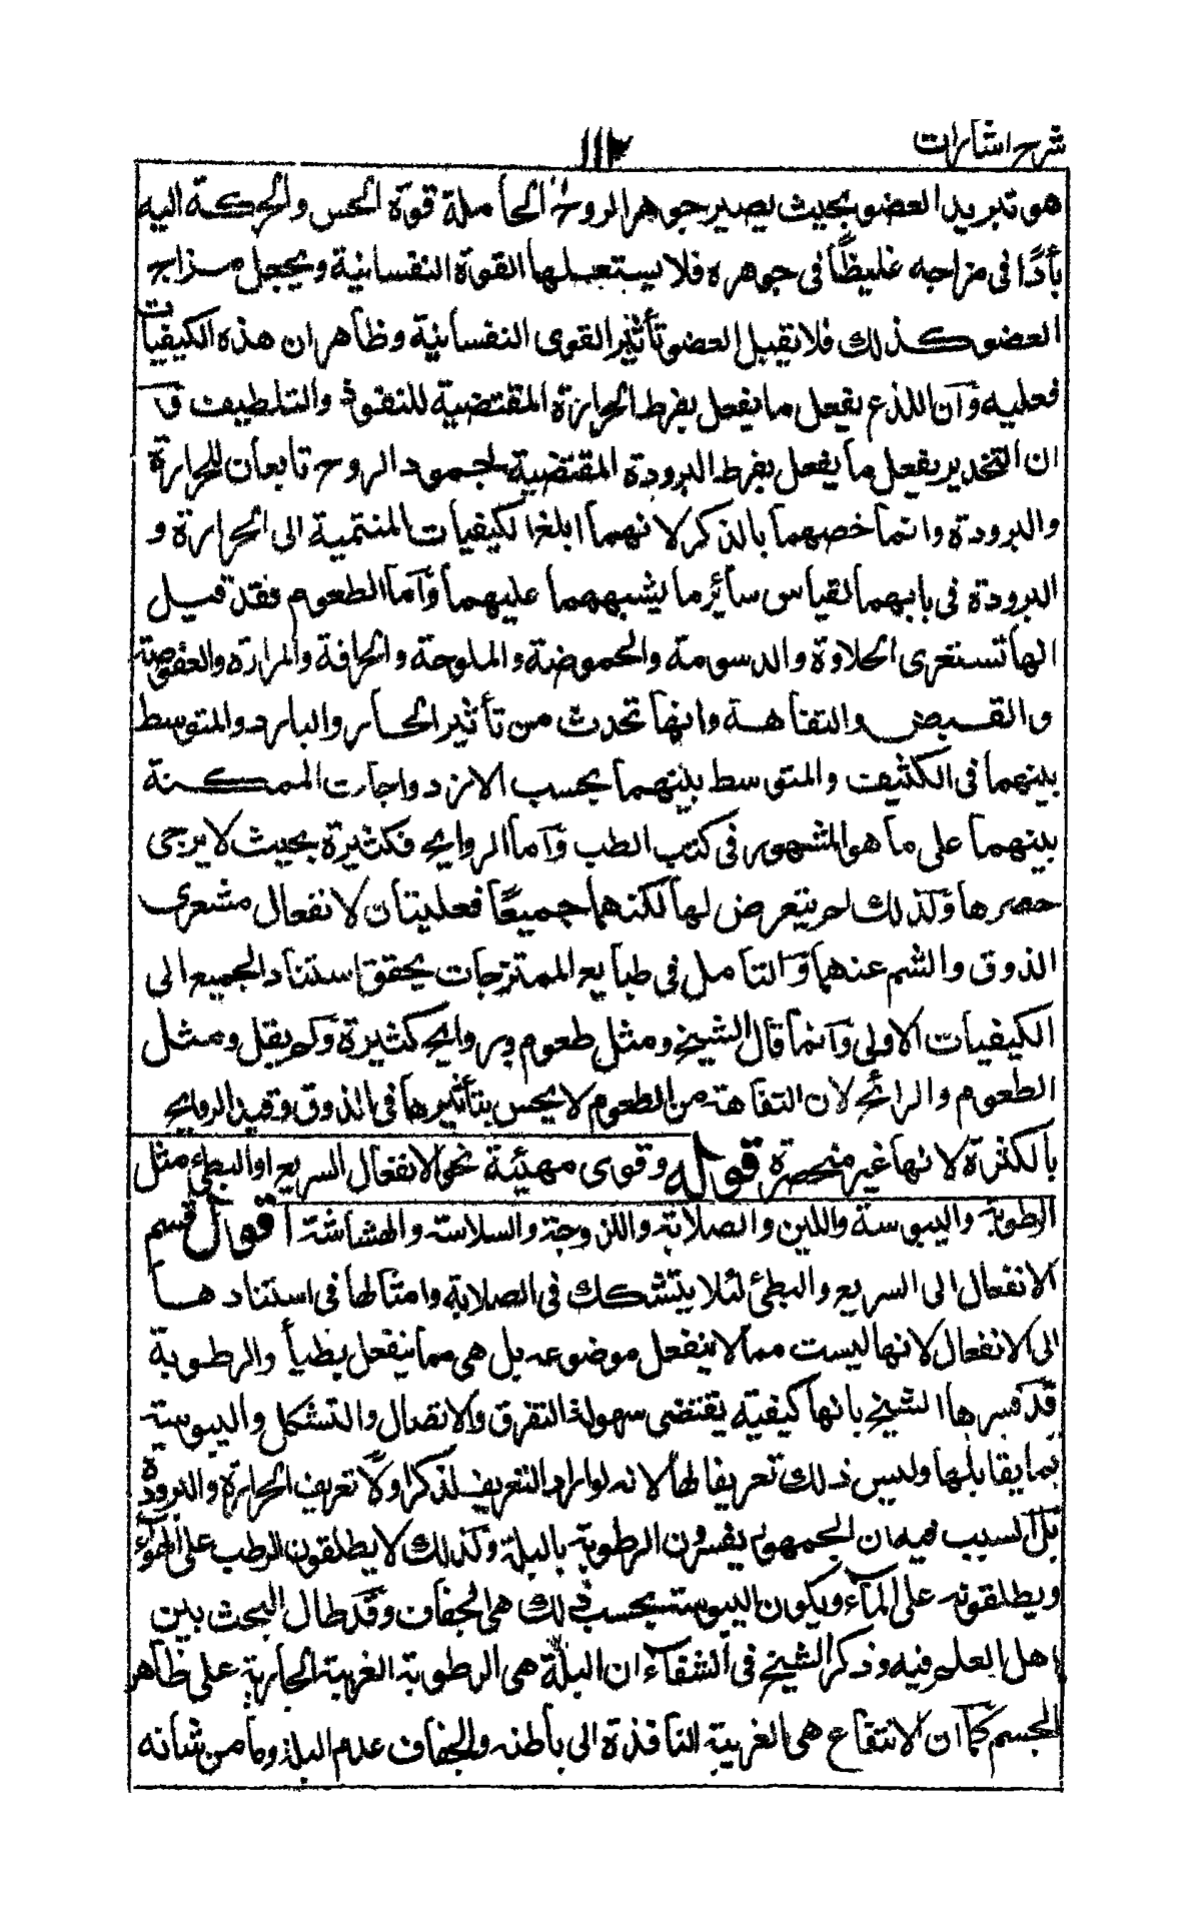 شرح اشارات ١١٢
هو تبريد العضو بحيث يصير جوهر الروح الحاملة قوة الحس والحركة اليه
باردًا فى مزاجه غليظًا فى جوهره فلا يستعملها القوة النفسانية ويجعل مزاج
العضو كذلك فلا تقبل العضو تأثير القوى النفسانية وظاهر ان هذه الكيفيات
فعلية وان اللذع يفعل ما يفعل بفرط الحرارة المقتضية للنفوذ والتلطيف و
ان التخدير يفعل ما يفعل بفرط البرودة المقتضية لجمود الروح تابعان للحرارة
والبرودة وانما خصهما بالذكر لانهما ابلغ الكيفيات المنتمية الى الحرارة و
البرودة فى بابهما لقياس سائر ما يشبههما عليهما واما الطعوم فقد قيل
انها تستغرى الحلاوة والدسومة والحموضة والملوحة والحرافة والمرارة والعفوصة
و القبض والتفاهة وانها تحدث من تأثير الحار والبارد والمتوسط
بينهما فى الكثيف والمتوسط بينهما بحسب الازدواجات الممكنة
بينهما على ما هو المشهور فى كتب الطب واما الروايح فكثيرة بحيث لا يرجى
حصرها ولذلك لم يتعرض لها لكنهما جميعًا فعليتان لانفعال مشعرى
الذوق والشم عنهما و التأمل فى طبايع الممتزجات يحقق استناد الجميع الى
الكيفيات الاولى وانما قال الشيخ ومثل طعوم وروايح كثيرة ولم يقل ومثل
الطعوم والرائح لان التفاهة من الطعوم لا يحس بتأثيرها فى الذوق وقيد الروايح
بالكثرة لانها غير منحصرة قوله وقوى مهيئة نحو الانفعال السريع او البطئ مثل
الرطوبة واليبوسة واللين والصلابة واللزوجة والسلاسة والهشاشة اقول قسم
الانفعال الى السريع والبطئ لئلا يتشكك فى الصلابة وامثالها فى استنادها
الى الانفعال لانها ليست مما لا ينفعل موضوعه بل هى مما ينفعل بطيأ والرطوبة
قد فسرها الشيخ بانها كيفية يقتضى سهولة التفرق والاتصال والتشكل واليبوسة
بما يقابلها وليس ذلك تعريفا لها لانه لو اراد التعريف لذكر اولًا تعريف الحرارة والبرودة
بل السبب فيه ان الجمهور يفسرون الرطوبة بالبلة ولذلك لا يطلقون الرطب على الهواء
ويطلقونه على الماء ويكون اليبوسة بحسب ذلك هى الجفاف وقد طال البحث بين
اهل العلم فيه وذكر الشيخ فى الشفاء ان البلة هى الرطوبة الغريبة الجارية على ظاهر
الجسم كما ان الانتقاع هى الغريبة النافذة الى باطنه والجفاف عدم البلة وما من شانه